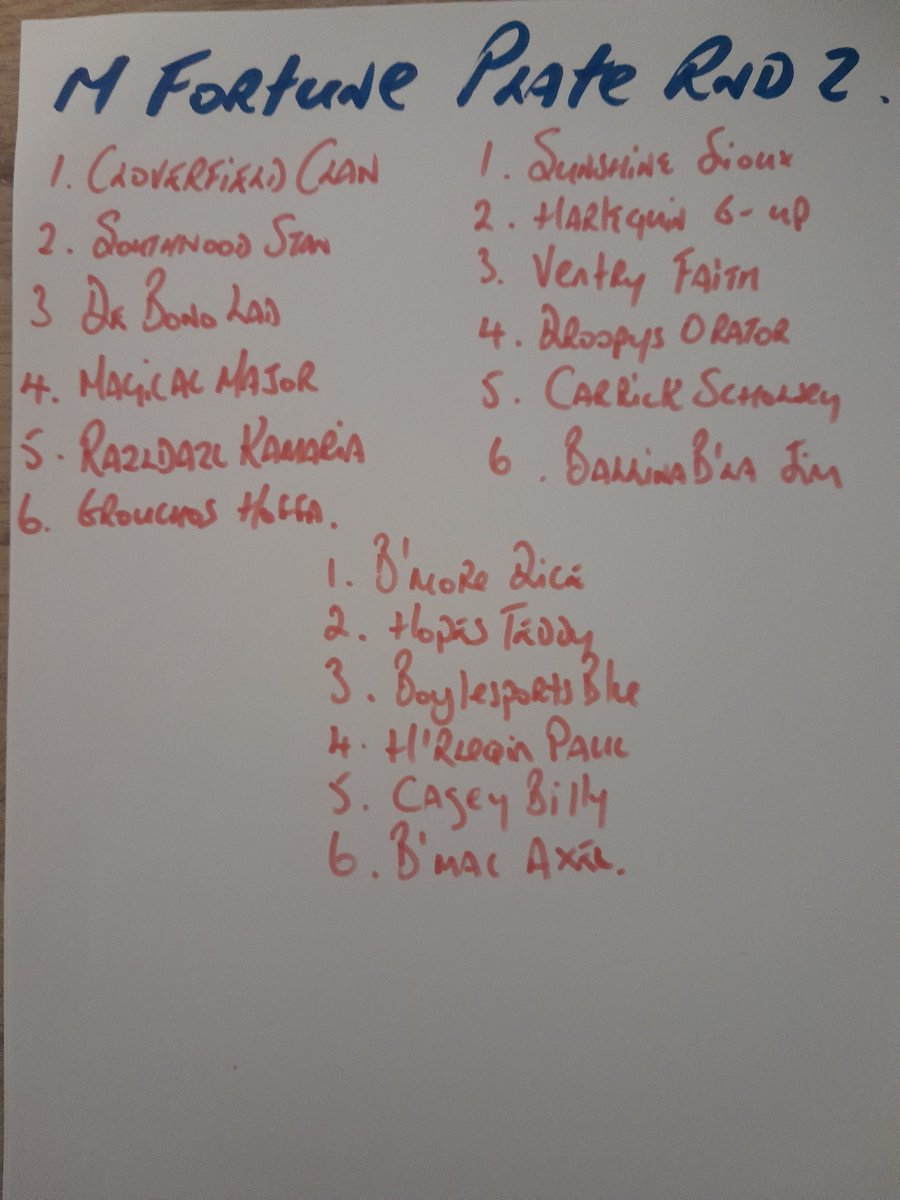 M Fortune Plate RND 2.
1. Cloverfield Clan
2. Southwood Stan
3 De Bono Lad
4. Magical Major
5. Razldazl Kamaria
6. Grouchos Hoffa.
1. Sunshine Sioux
2. Harlequin G-up
3. Ventry Faith
4. Droopys Orator
5. Carrick
6. BallinaB'la Jim
1. B'more Dice
2. Hopes Teddy
3. Boylesports Blue
4. H'Rleqin Paul
5. Casey Billy
6. B'mac Axel.